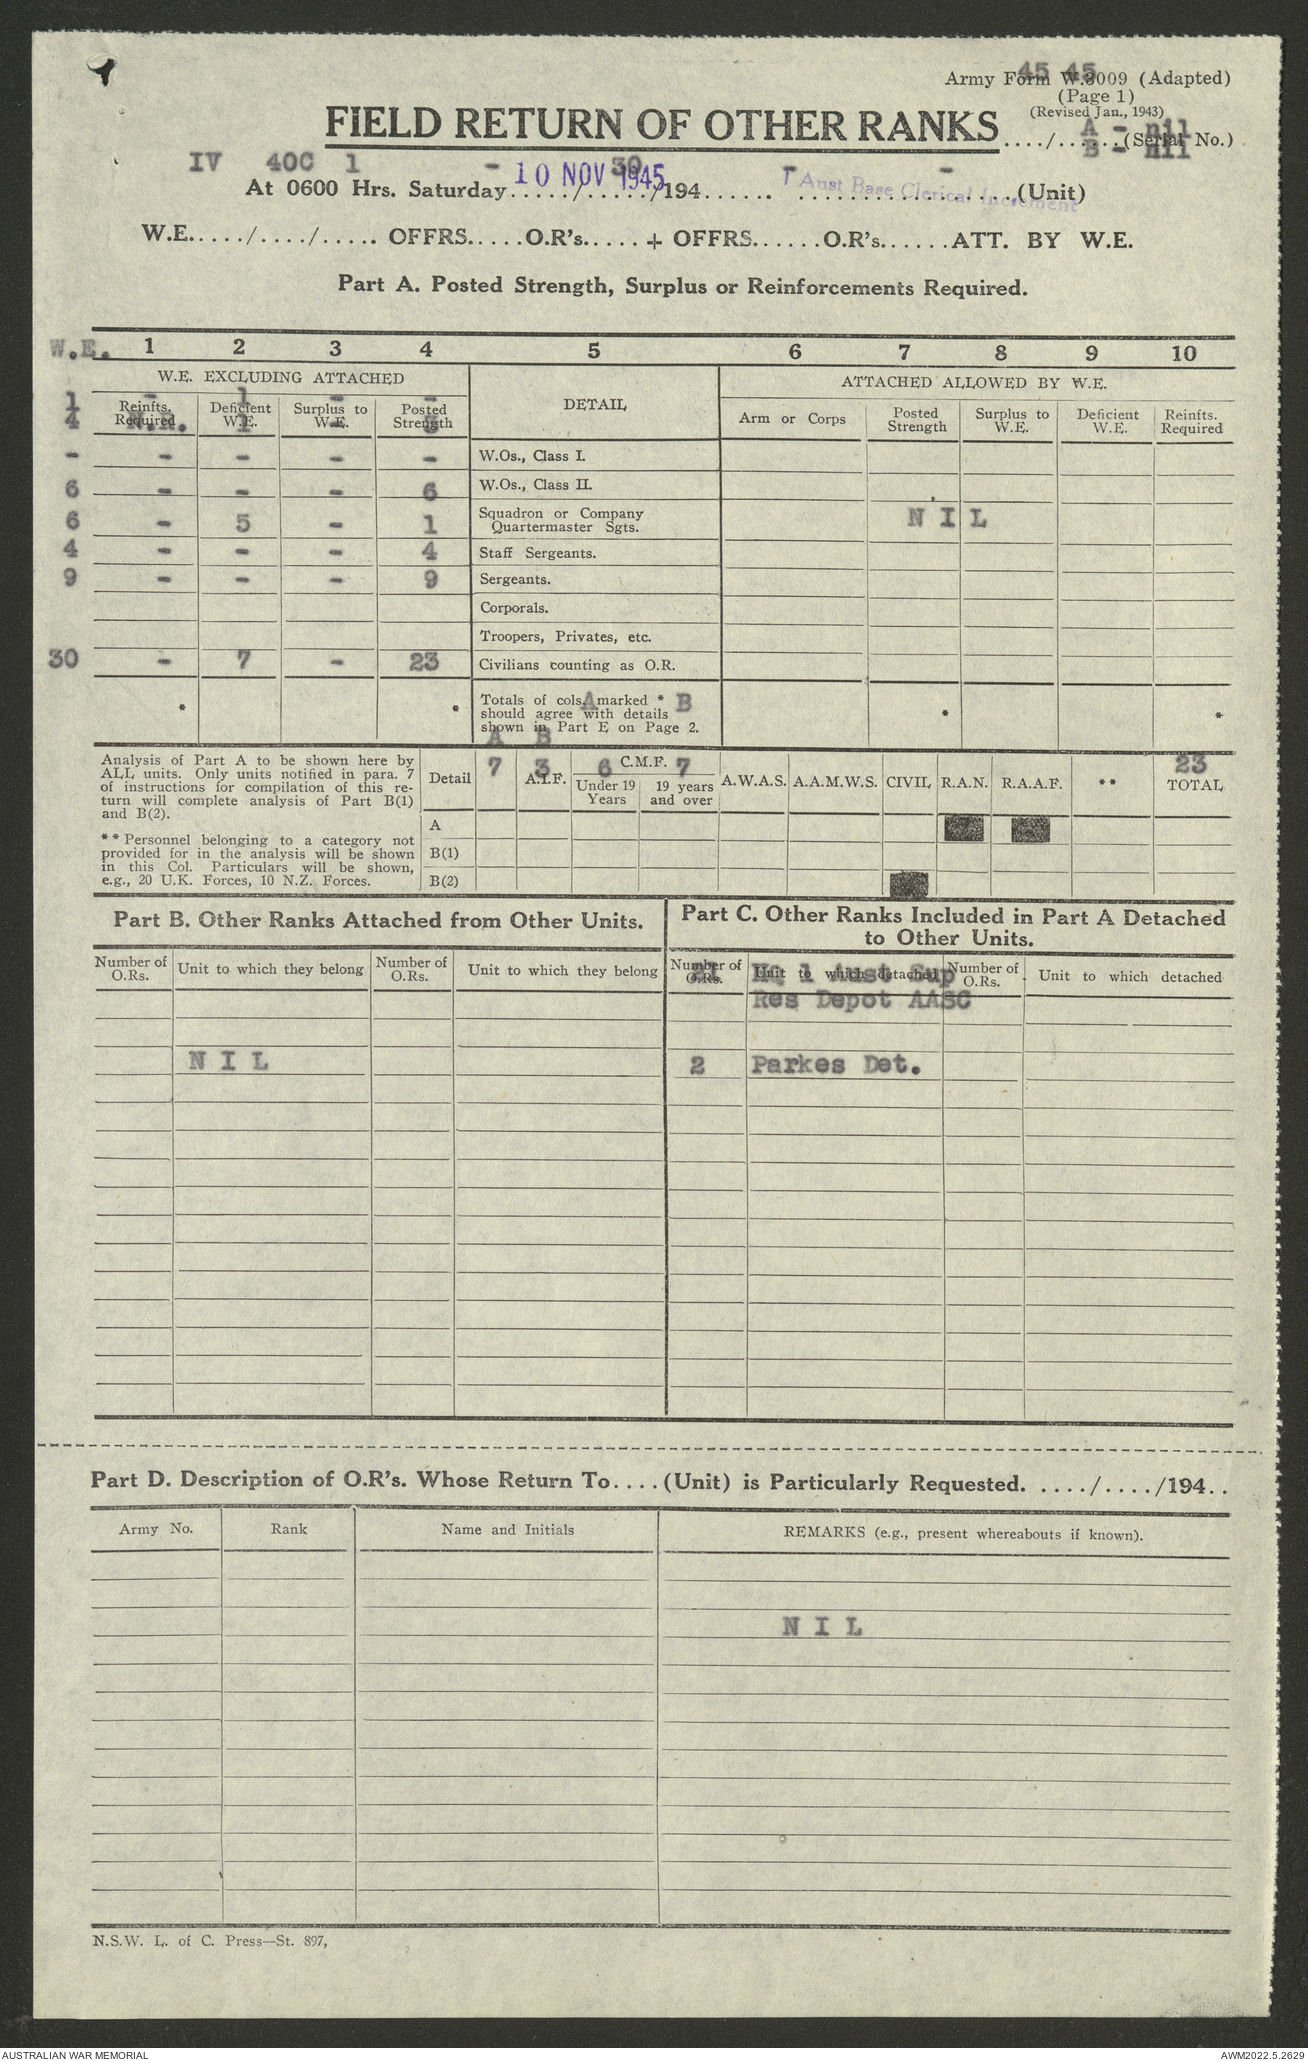 45 45
Army Form W.3009 (Adapted)
(Page 1)
(Revised Jan., 1943)
FIELD RETURN OF OTHER RANKS ..../......(Serial No.)
A - nil
B - nil
IV 40C 1 - 30 -
At 0600 Hrs. Saturday...../...../194...... ..................(Unit)
10 NOV 1945
Aust Base Clerical Increment
W.E...../..../..... OFFRS.....O.R's.....+ OFFRS......O.R's......ATT. BY W.E.
Part A. Posted Strength, Surplus or Reinforcements Required.
W.E. 1 2 3 4 5 6 7 8 9 10
W.E. EXCLUDING ATTACHED
DETAIL
ATTACHED ALLOWED BY W.E.
Reinfts. Required
Deficient W.E.
Surplus to W.E.
Posted Strength
Arm or Corps
Posted Strength
Surplus to W.E.
Deficient W.E.
Reinfts. Required
1 - 1 - -
4 N.R. 1 - 3
- - - - - W.Os., Class I.
6 - - - 6 W.Os., Class II.
6 - 5 - 1 Squadron or Company
Quartermaster Sgts.
N I L
4 - - - 4 Staff Sergeants.
9 - - - 9 Sergeants.
Corporals.
Troopers, Privates, etc.
30 - 7 - 23 Civilians counting as O.R.
* * Totals of cols. marked * * *
should agree with details
shown in Part E on Page 2.
A B
A B
Analysis of Part A to be shown here by
ALL units. Only units notified in para. 7
of instructions for compilation of this re-
turn will complete analysis of Part B(1)
and B(2).
** Personnel belonging to a category not
provided for in the analysis will be shown
in this Col. Particulars will be shown,
e.g., 20 U.K. Forces, 10 N.Z. Forces.
7 3 6 7 23
Detail A.I.F. C.M.F. A.W.A.S. A.A.M.W.S. CIVIL R.A.N. R.A.A.F. ** TOTAL
Under 19 Years
19 years and over
A
B(1)
B(2)
Part B. Other Ranks Attached from Other Units.
Part C. Other Ranks Included in Part A Detached
to Other Units.
Number of O.Rs.
Unit to which they belong
Number of O.Rs.
Unit to which they belong
Number of O.Rs.
Unit to which detached
Number of O.Rs.
Unit to which detached
Hq 1 Aust Sup
Res Depot AASC
N I L
2 Parkes Det.
Part D. Description of O.R's. Whose Return To....(Unit) is Particularly Requested. ..../..../194..
Army No. Rank Name and Initials REMARKS (e.g., present whereabouts if known).
N I L
N.S.W. L. of C. Press—St. 897,
AUSTRALIAN WAR MEMORIAL
AWM2022.5.2629